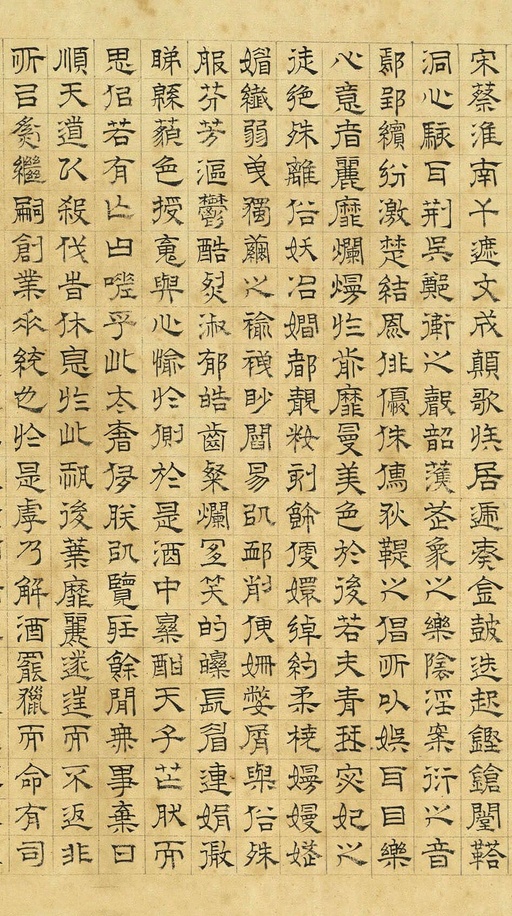 宋蔡淮南干遮文成顛歌族居遞奏金鼓迭起鏗鎗闛鞈
洞心駭耳荊吳鄭衛之聲韶濩武象之樂陰淫案衍之音
鄢郢繽紛激楚結風俳優侏儒狄鞮之倡所以娛耳目樂
心意者麗靡爛熳於前靡曼美色於後若夫青琴宓妃之
徒絕殊離俗妖冶嫺都靚糚刻飾便嬛綽約柔橈嫚嫚嫵
媚纖弱曳獨繭之褕袣眇閻易以卹削便姍嫳屑與俗殊
服芬芳漚鬱酷烈淑郁皓齒粲爛宜笑的皪長眉連娟微
睇緜藐色授魂與心愉於側於是酒中樂酣天子芒然而
思佀若有亡曰嗟乎此太奢侈朕以覽聽餘閒無事棄日
順天道以殺伐時休息於此恐後葉靡麗遂往而不返非
所以為繼嗣創業垂統也於是乎乃解酒罷獵而命有司